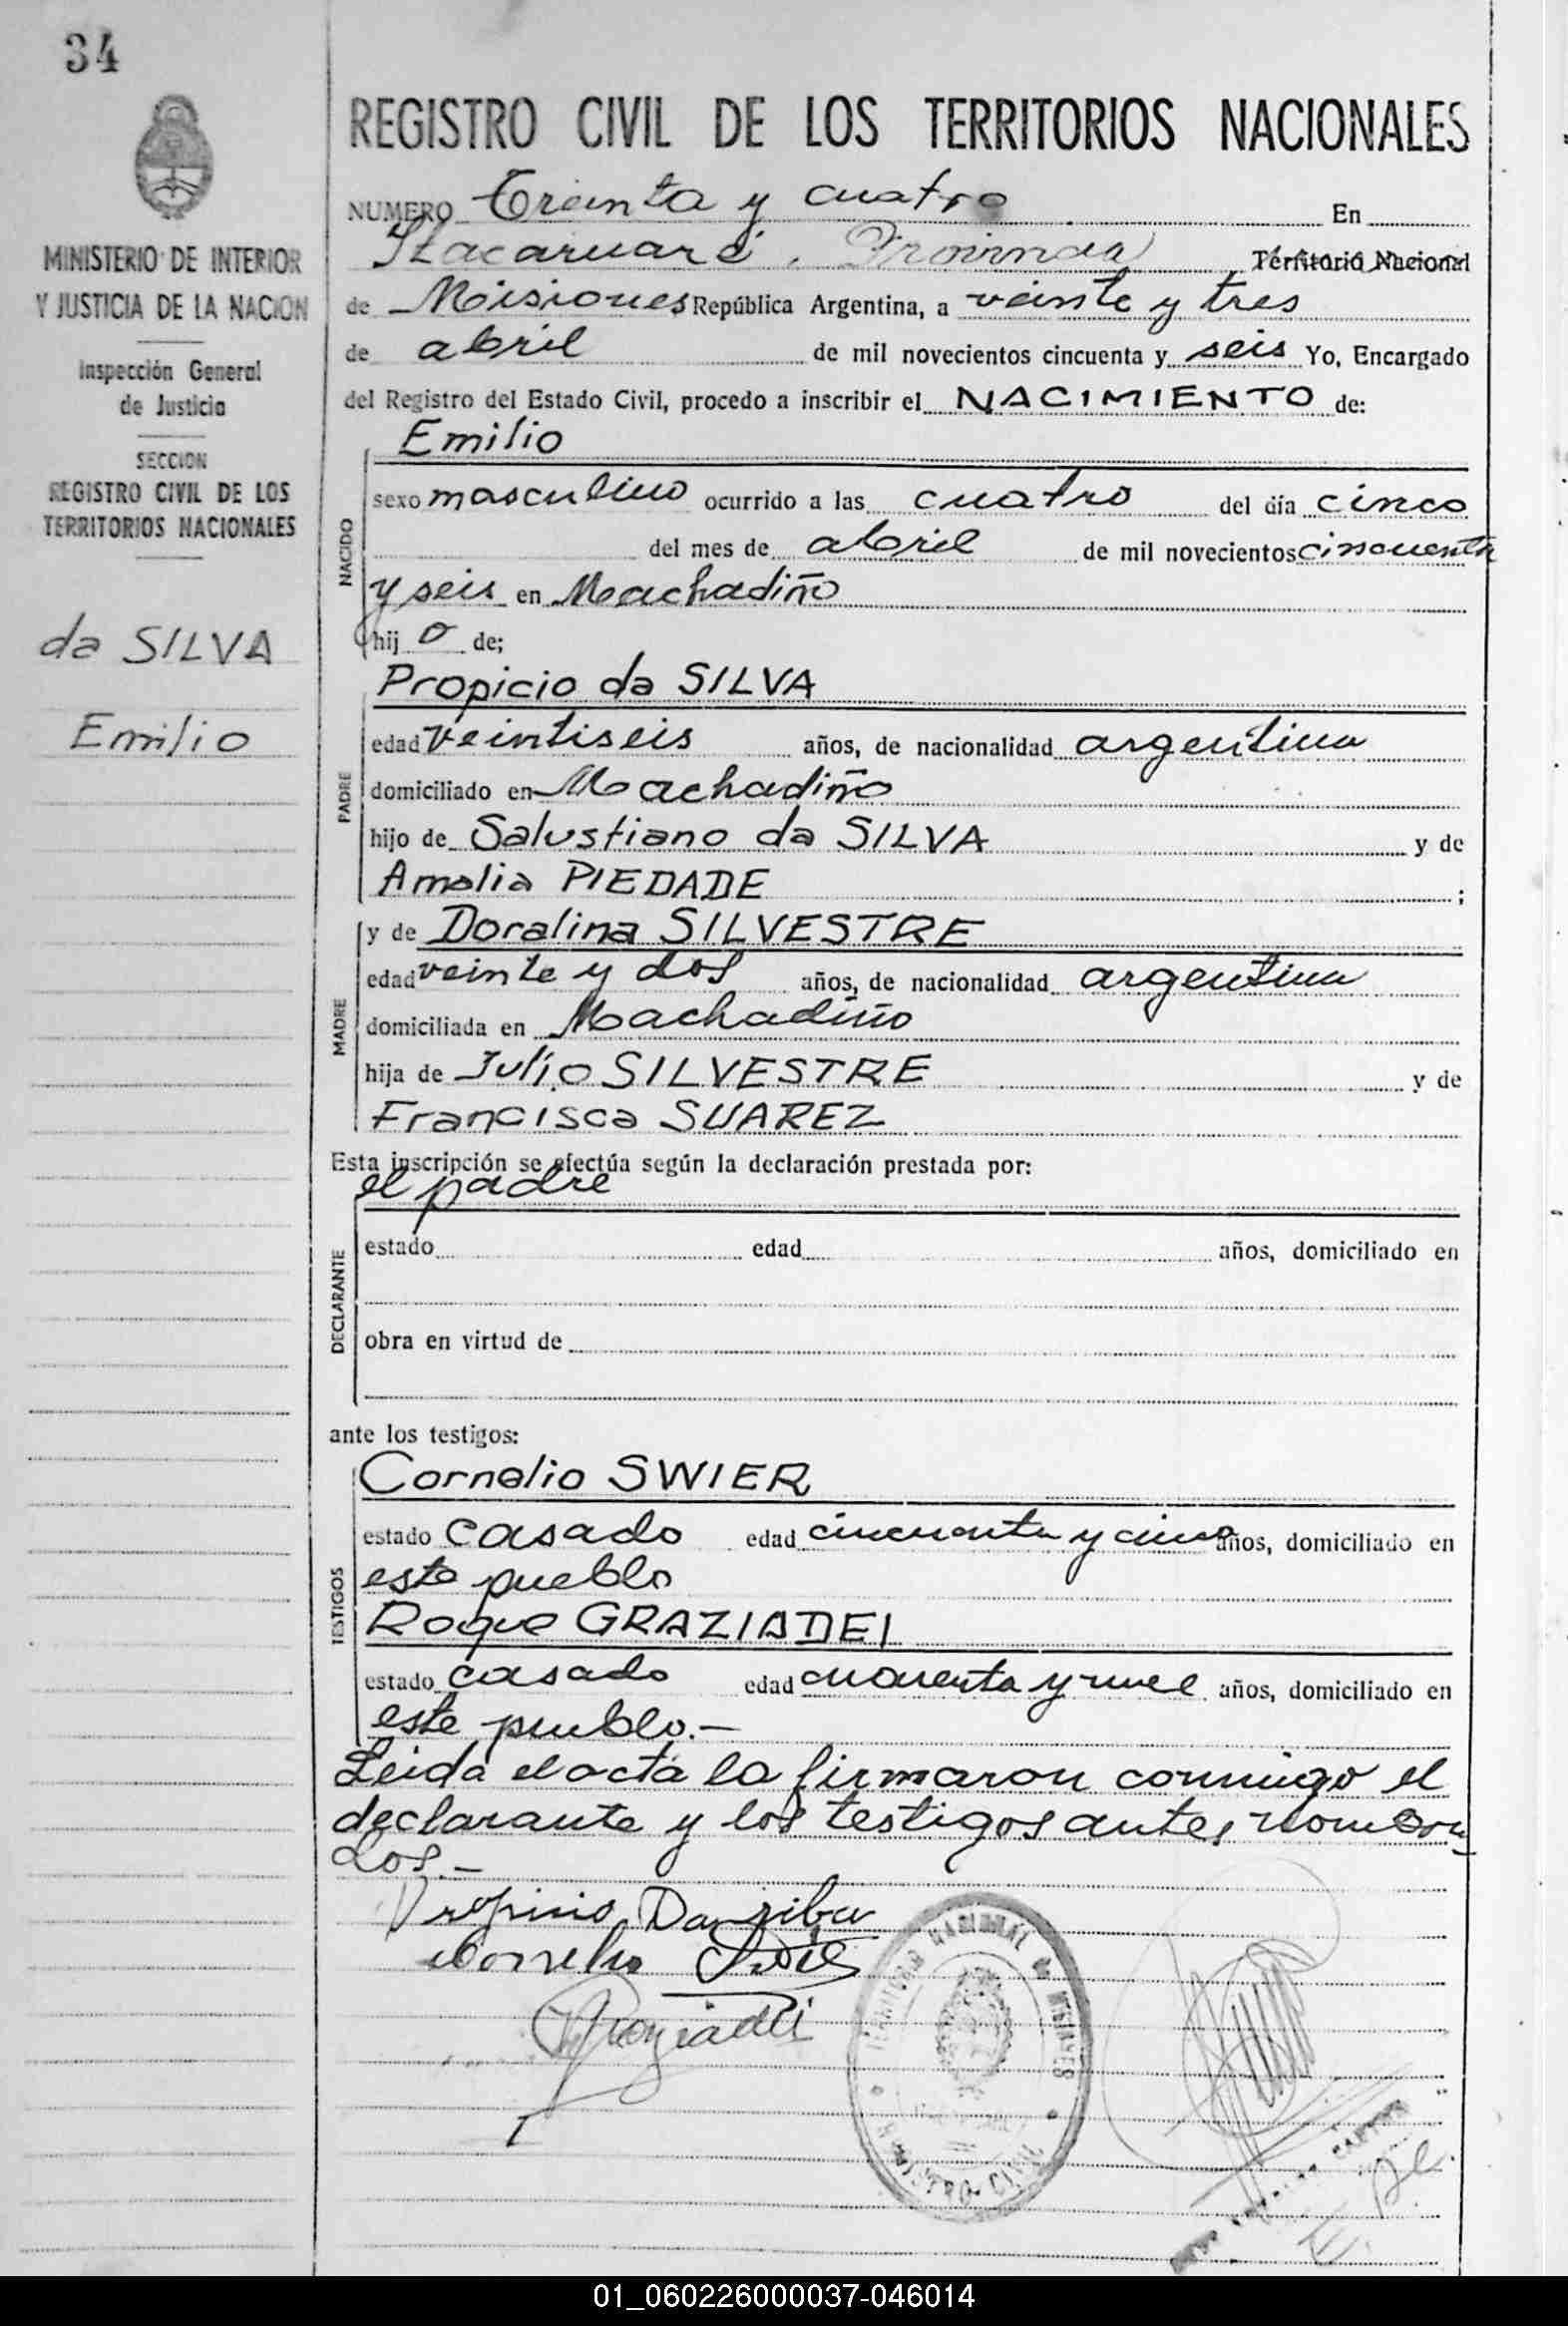 34
MINISTERIO DE INTERIOR
Y JUSTICIA DE LA NACION
Inspección General
de Justicia
SECCION
REGISTRO CIVIL DE LOS
TERRITORIOS NACIONALES
da SILVA
Emilio
REGISTRO CIVIL DE LOS TERRITORIOS NACIONALES
NUMERO Treinta y cuatro En
Itacaruaré, Provincia Territorio Nacional
de Misiones República Argentina, a veinte y tres
de abril de mil novecientos cincuenta y seis Yo, Encargado
del Registro del Estado Civil, procedo a inscribir el NACIMIENTO de:
Emilio
NACIDO
sexo masculino ocurrido a las cuatro del día cinco
del mes de abril de mil novecientos cincuenta
y seis en Machadiño
hij o de;
Propicio da SILVA
PADRE
edad veintiseis años, de nacionalidad argentina
domiciliado en Machadiño
hijo de Salustiano da SILVA y de
Amalia PIEDADE ;
y de Doralina SILVESTRE
MADRE
edad veinte y dos años, de nacionalidad argentina
domiciliada en Machadiño
hija de Julio SILVESTRE y de
Francisca SUAREZ
Esta inscripción se efectúa según la declaración prestada por:
el padre
DECLARANTE
estado edad años, domiciliado en
obra en virtud de
ante los testigos:
Cornelio SWIER
TESTIGOS
estado casado edad cincuenta y cinco años, domiciliado en
este pueblo
Roque GRAZIADEI
estado casado edad cuarenta y nueve años, domiciliado en
este pueblo.-
Leida el acta la firmaron conmigo el
declarante y los testigos antes nombra-
dos.-
Cornelio
REGISTRO CIVIL
01_060226000037-046014